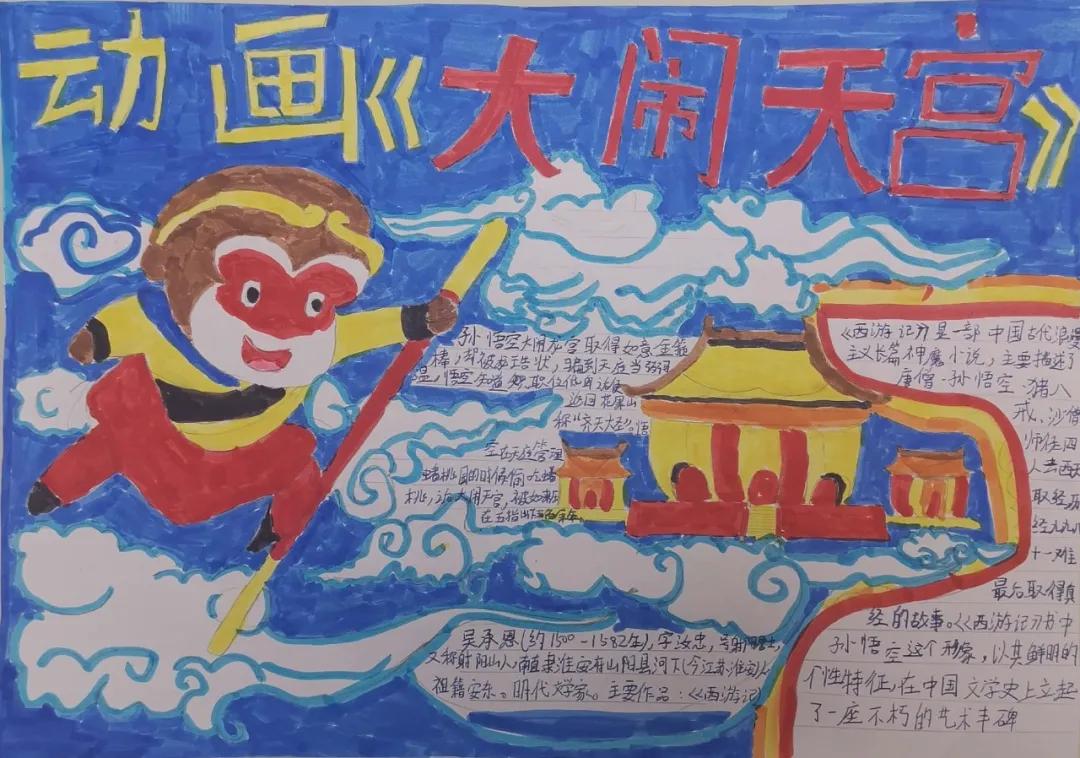 动画《大闹天宫》
孙悟空大闹龙宫取得如意金箍
棒,却被龙王告状,骗到天庭当弼马
温,悟空知道职位低
返回花果山
称"齐天大圣",悟
空在天庭管理
蟠桃园的时候偷吃蟠
桃,大闹天宫,被如来
在五指山下五百余年。
《西游记》是一部中国古代浪漫
主义长篇神魔小说,主要描述了
唐僧、孙悟空、猪八
戒、沙僧
师徒四
人去西天
取经历
经九九八
十一难
最后取得真
经的故事。《西游记》书中
孙悟空这个形象,以其鲜明的
个性特征,在中国文学史上立起
了一座不朽的艺术丰碑
吴承恩(约1500-1582年),字汝忠,号射阳
又称射阳山人,南直隶淮安府山阳县河下(今江苏淮安)人
祖籍安东。明代文学家。主要作品:《西游记》